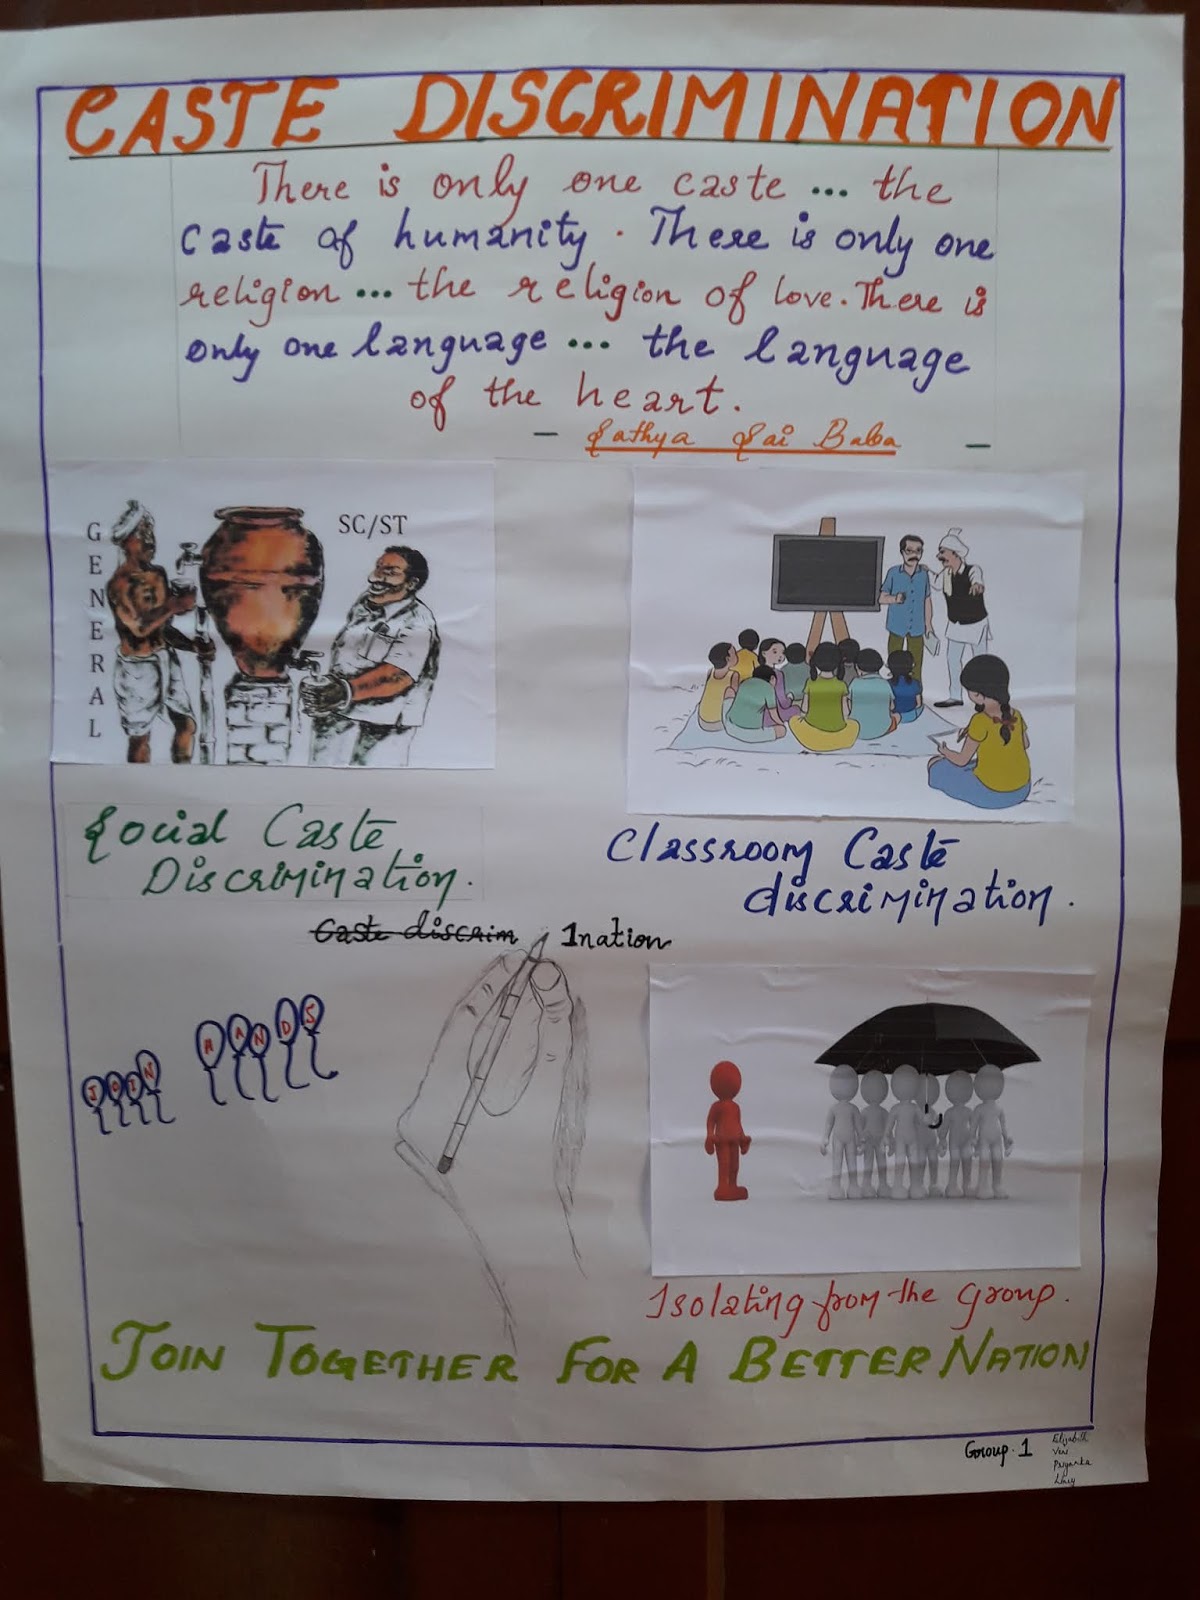 CASTE DISCRIMINATION
There is only one caste ... the
caste of humanity. There is only one
religion ... the religion of love. There is
only one language ... the language
of the heart.
- Sathya Sai Baba -
GENERAL
SC/ST
Social Caste
Discrimination.
Classroom Caste
discrimination.
Caste discrim 1nation
JOIN HANDS
Isolating from the group.
JOIN TOGETHER FOR A BETTER NATION
Group. 1
Priyanka